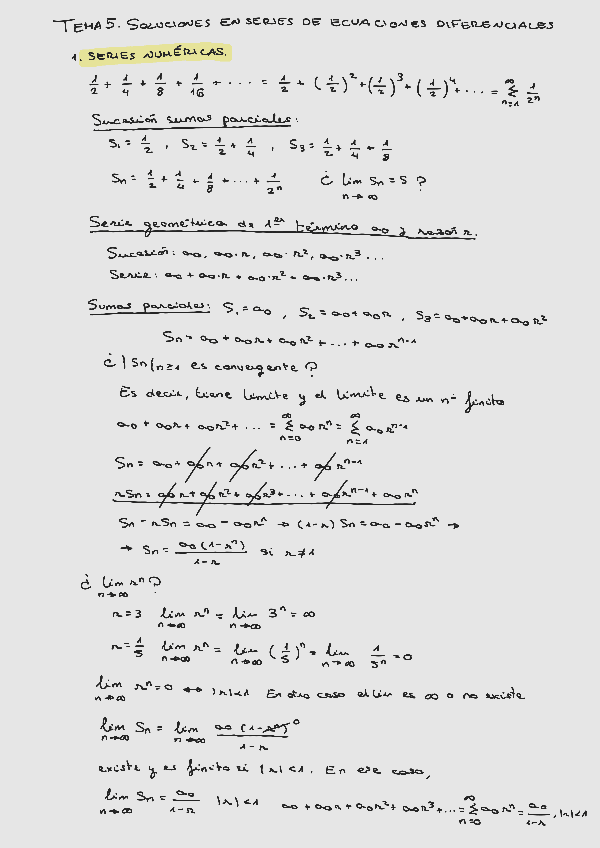 TEMA 5. SOLUCIONES EN SERIES DE ECUACIONES DIFERENCIALES
1. SERIES NUMÉRICAS.
1/2 + 1/4 + 1/8 + 1/16 + ... = 1/2 + (1/2)² + (1/2)³ + (1/2)⁴ + ... = ∑_{n=1}^{∞} 1/2ⁿ
Sucesión sumas parciales:
S₁ = 1/2 , S₂ = 1/2 + 1/4 , S₃ = 1/2 + 1/4 + 1/8
Sₙ = 1/2 + 1/4 + 1/8 + ... + 1/2ⁿ ¿ lim_{n→∞} Sₙ = S ?
Serie geométrica de 1er término a₀ y razón r.
Sucesión: a₀, a₀·r, a₀·r², a₀·r³ ...
Serie: a₀ + a₀·r + a₀·r² + a₀·r³ ...
Sumas parciales: S₁ = a₀ , S₂ = a₀ + a₀r , S₃ = a₀ + a₀r + a₀r²
Sₙ = a₀ + a₀r + a₀r² + ... + a₀rⁿ⁻¹
¿ {Sₙ}n≥1 es convergente ?
Es decir, tiene límite y el límite es un nº finito
a₀ + a₀r + a₀r² + ... = ∑_{n=0}^{∞} a₀rⁿ = ∑_{n=1}^{∞} a₀rⁿ⁻¹
Sₙ = a₀ + a₀r + a₀r² + ... + a₀rⁿ⁻¹
rSₙ = a₀r + a₀r² + a₀r³ + ... + a₀rⁿ⁻¹ + a₀rⁿ
Sₙ - rSₙ = a₀ - a₀rⁿ → (1-r) Sₙ = a₀ - a₀rⁿ →
→ Sₙ = a₀(1-rⁿ)/(1-r) si r≠1
¿ lim_{n→∞} rⁿ ?
r = 3 lim_{n→∞} rⁿ = lim_{n→∞} 3ⁿ = ∞
r = 1/5 lim_{n→∞} rⁿ = lim_{n→∞} (1/5)ⁿ = lim_{n→∞} 1/5ⁿ = 0
lim_{n→∞} rⁿ = 0 ↔ |r|<1 En otro caso el lim es ∞ o no existe
lim_{n→∞} Sₙ = lim_{n→∞} a₀(1-rⁿ)/(1-r) 0
existe y es finito si |r|<1. En ese caso,
lim_{n→∞} Sₙ = a₀/(1-r) |r|<1 a₀ + a₀r + a₀r² + a₀r³ + ... = ∑_{n=0}^{∞} a₀rⁿ = a₀/(1-r), |r|<1